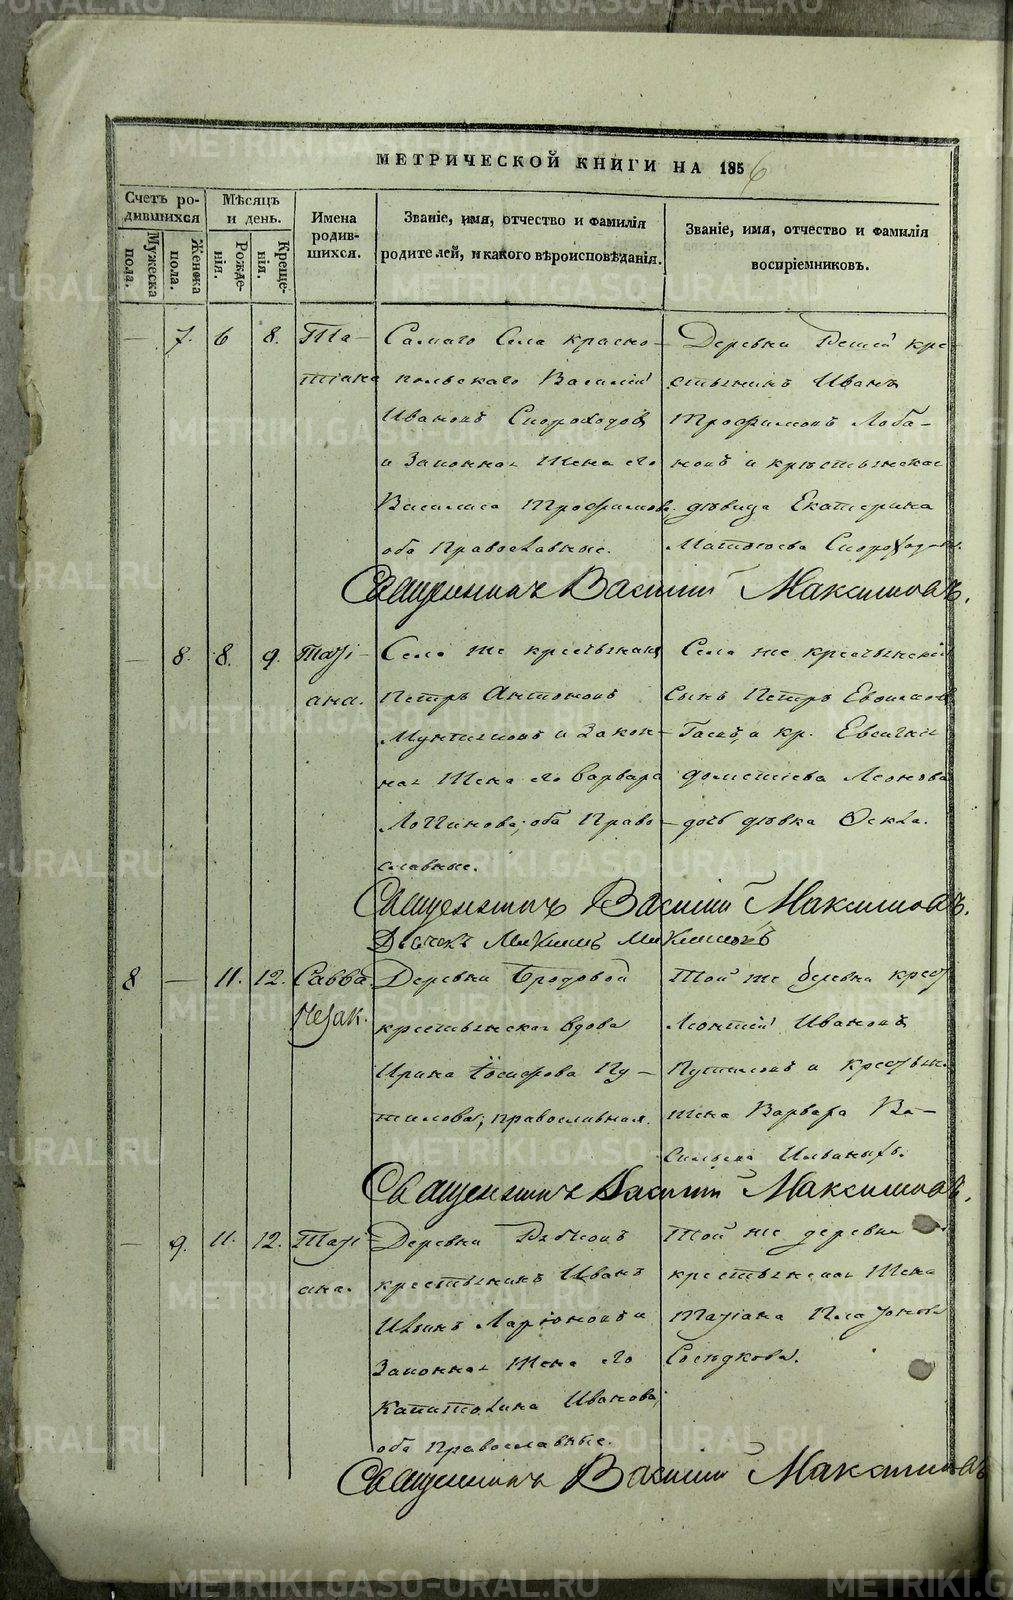 МЕТРИЧЕСКОЙ КНИГИ НА 1856
Счетъ родившихся
Мужеска пола.
Женска пола.
Мѣсяцъ и день.
Рожденія.
Крещенія.
Имена родившихся.
Званіе, имя, отчество и фамилія
родителей, и какого вѣроисповѣданія.
Званіе, имя, отчество и фамилія
воспріемниковъ.
— 7. 6 8. Та-
тіана
Самаго Села красно-
польскаго Василій
Ивановъ Скороходовъ
и Законная Жена его
Василиса Трофимова
оба Православные.
Деревни кре-
стьянинъ Иванъ
Трофимовъ Лоба-
новъ и крестьянская
дѣвица Екатерина
Скороходова.
Священникъ Василій Максимовъ.
— 8. 8. 9. Таті-
ана.
Села же крестьянинъ
Петръ Антоновъ
и Закон-
ная Жена его Варвара
Логинова; оба Право-
славные.
Села же крестьянскій
Сынъ Петръ
и кр.
Леонова
дочь дѣвка
Священникъ Василій Максимовъ.
Дьячекъ
8 — 11. 12. Савва
Незак.
Деревни Бродовой
крестьянская вдова
Ирина Іосифова Пу-
тилова; православная.
Той же деревни крест.
Леонтій Ивановъ
Путиловъ и крестьян.
жена Варвара Ва-
сильева
Священникъ Василій Максимовъ.
— 9. 11. 12. Таті
ана.
Деревни
крестьянинъ Иванъ
Ильинъ Ларіоновъ и
Законная Жена его
Капитолина Иванова;
оба Православные.
Той же деревни
крестьянская Жена
Татіана Платонова
Сосѣдкова.
Священникъ Василій Максимовъ
METRIKI.GASO-URAL.RU